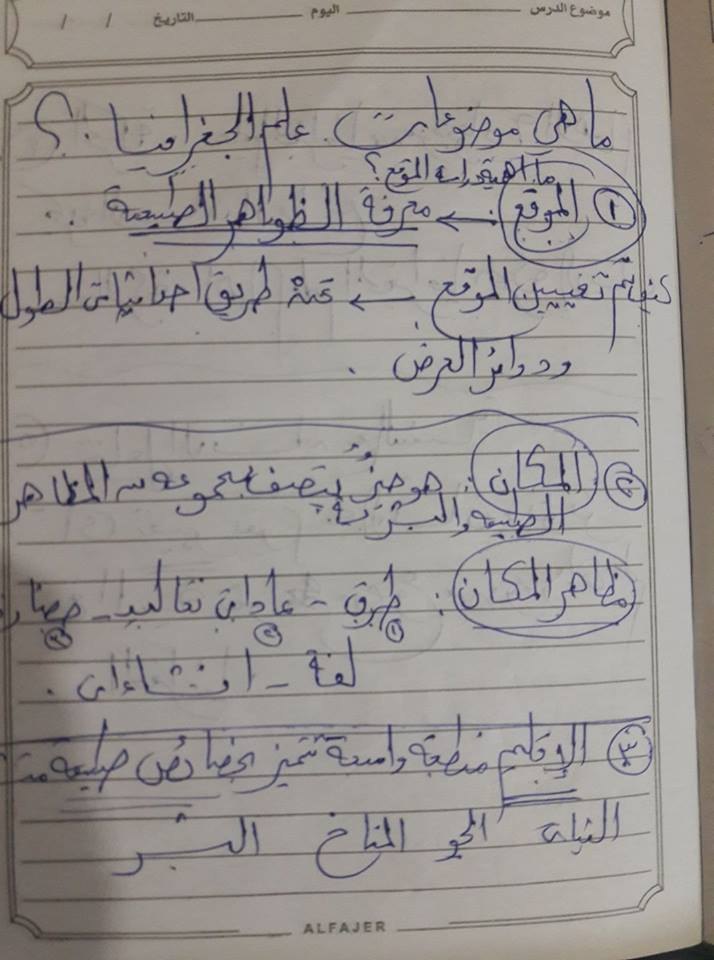 موضوع الدرس اليوم التاريخ / /
ما هي موضوعات علم الجغرافيا . ؟
ما اهمية دراسة الموقع ؟
① الموقع . ← معرفة الظواهر الطبيعية . .
كيف يتم تعيين الموقع ← عن طريق احداثيات الطول
ودوائر العرض .
② المكان : هو حيز يتصف بمجموعه من المظاهر
الطبيعية والبشرية
مظاهر المكان : طرق - عادات تقاليد -
① ② ③
لغة - انشاءات .
③ الإقليم منطقة واسعة تتميز بخصائص طبيعية
النبات الجو المناخ البشر
ALFAJER